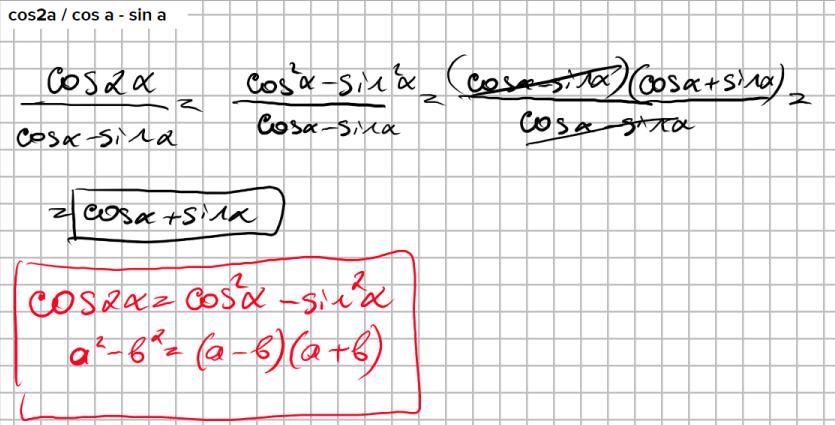 cos2a / cos a - sin a
cos2α / cosα-sinα = cos²α-sin²α / cosα-sinα = (cosα-sinα)(cosα+sinα) / cosα-sinα =
= cosα+sinα
cos2α = cos²α - sin²α
a²-b² = (a-b)(a+b)